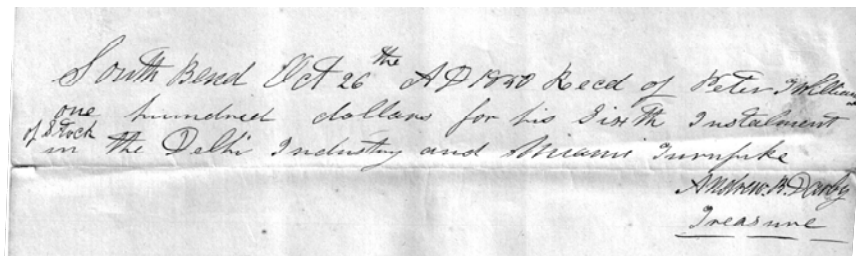 South Bend Oct 26th AD 1840 Recd of Peter Williams
one hundred dollars for his Sixth Instalment
of Stock in the Delhi Industry and Miami Turnpike
Andrew. B. Darby
Treasure